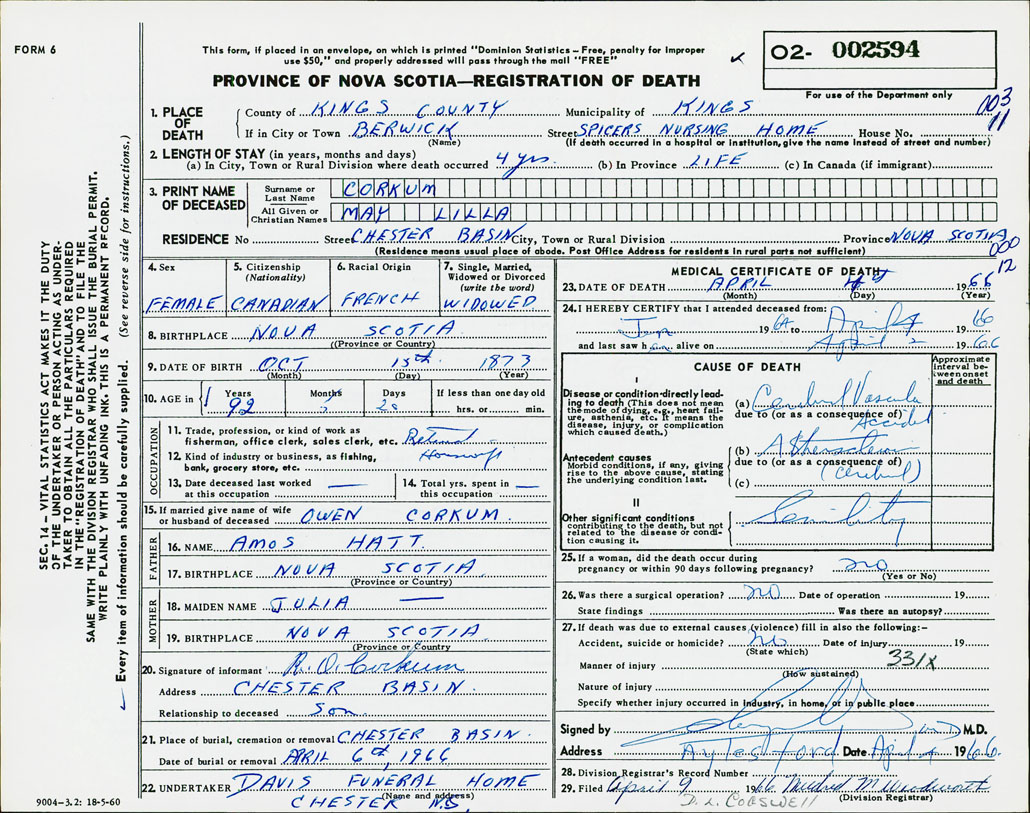 FORM 6
This form, if placed in an envelope, on which is printed "Dominion Statistics – Free, penalty for improper
use $50," and properly addressed will pass through the mail "FREE"
O2- 002594
For use of the Department only
PROVINCE OF NOVA SCOTIA—REGISTRATION OF DEATH
003
11
1. PLACE OF DEATH
County of KINGS COUNTY Municipality of KINGS
If in City or Town BERWICK Street SPICERS NURSING HOME House No.
(Name) (If death occurred in a hospital or institution, give the name instead of street and number)
2. LENGTH OF STAY (in years, months and days)
(a) In City, Town or Rural Division where death occurred 4 yrs. (b) In Province LIFE (c) In Canada (if immigrant)
3. PRINT NAME OF DECEASED
Surname or Last Name CORKUM
All Given or Christian Names MAY LILLA
RESIDENCE No Street CHESTER BASIN City, Town or Rural Division Province NOVA SCOTIA
(Residence means usual place of abode. Post Office Address for residents in rural parts not sufficient)
000
12
4. Sex FEMALE
5. Citizenship (Nationality) CANADIAN
6. Racial Origin FRENCH
7. Single, Married, Widowed or Divorced (write the word) WIDOWED
8. BIRTHPLACE NOVA SCOTIA
(Province or Country)
9. DATE OF BIRTH OCT 15th 1873
(Month) (Day) (Year)
10. AGE in Years 92 Months Days If less than one day old
hrs. or min.
OCCUPATION
11. Trade, profession, or kind of work as
fisherman, office clerk, sales clerk, etc. Retired
12. Kind of industry or business, as fishing,
bank, grocery store, etc.
13. Date deceased last worked at this occupation —
14. Total yrs. spent in this occupation —
15. If married give name of wife
or husband of deceased OWEN CORKUM.
FATHER
16. NAME AMOS HATT
17. BIRTHPLACE NOVA SCOTIA
(Province or Country)
MOTHER
18. MAIDEN NAME JULIA —
19. BIRTHPLACE NOVA SCOTIA
(Province or Country)
20. Signature of informant R. O. Corkum
Address CHESTER BASIN.
Relationship to deceased son
21. Place of burial, cremation or removal CHESTER BASIN.
Date of burial or removal APRIL 6th, 1966
22. UNDERTAKER DAVIS FUNERAL HOME
(Name and address)
CHESTER N.S.
MEDICAL CERTIFICATE OF DEATH
23. DATE OF DEATH APRIL 4th 1966
(Month) (Day) (Year)
24. I HEREBY CERTIFY that I attended deceased from:
Jan 1964 to April 4 1966
and last saw her alive on April 2 1966
CAUSE OF DEATH
Approximate interval between onset and death
I
Disease or condition directly leading to death (This does not mean the mode of dying, e.g., heart failure, asthenia, etc. It means the disease, injury, or complication which caused death.)
(a) Cerebral Vascula
due to (or as a consequence of)
Accident
Antecedent causes
Morbid conditions, if any, giving rise to the above cause, stating the underlying condition last.
(b)
due to (or as a consequence of)
(cerebral)
(c)
II
Other significant conditions contributing to the death, but not related to the disease or condition causing it.
Senility
25. If a woman, did the death occur during
pregnancy or within 90 days following pregnancy? no
(Yes or No)
26. Was there a surgical operation? no Date of operation 19
State findings Was there an autopsy?
27. If death was due to external causes (violence) fill in also the following:–
Accident, suicide or homicide? no Date of injury 19
(State which)
Manner of injury 331X
(How sustained)
Nature of injury
Specify whether injury occurred in industry, in home, or in public place
Signed by M.D. M.D.
Address Aylesford Date April 4 1966.
28. Division Registrar's Record Number
29. Filed April 9 1966 Mildred M Woodworth
(Division Registrar)
D. L. COGSWELL
SEC. 14 – VITAL STATISTICS ACT MAKES IT THE DUTY
OF THE UNDERTAKER OR PERSON ACTING AS UNDER-
TAKER TO OBTAIN ALL THE PARTICULARS REQUIRED
IN THE "REGISTRATION OF DEATH" AND TO FILE THE
SAME WITH THE DIVISION REGISTRAR WHO SHALL ISSUE THE BURIAL PERMIT.
WRITE PLAINLY WITH UNFADING INK. THIS IS A PERMANENT RECORD.
Every item of information should be carefully supplied. (See reverse side for instructions.)
9004–3.2: 18-5-60